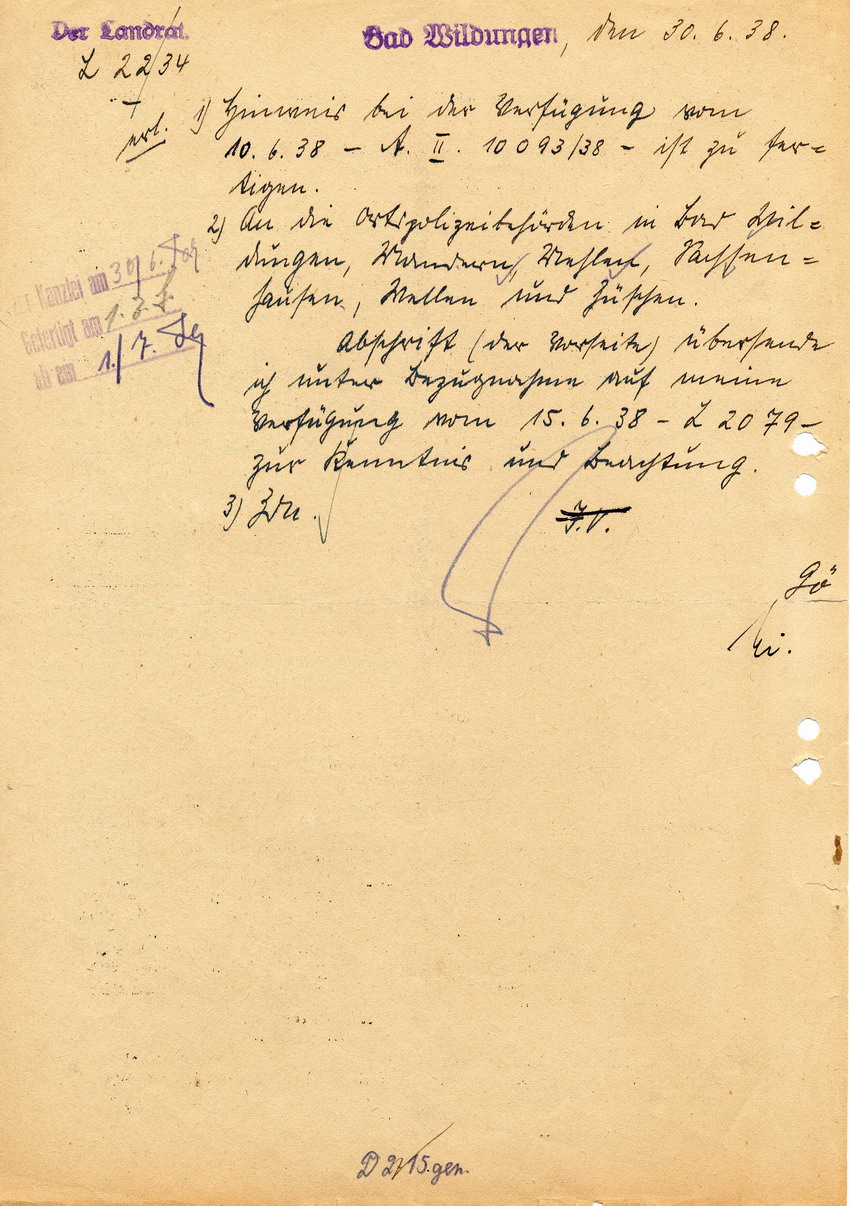 Der Landrat.
Bad Wildungen, den 30. 6. 38.
L 2234
erl.
1) Hinweis bei der Verfügung vom
10. 6. 38 – A. II. 10093/38 – ist zu fer=
tigen.
2) An die Ortspolizeibehörden in Bad Wil=
dungen, Mandern, Mehlen, Sachsen=
hausen, Wellen und Züschen.
Abschrift (der Vorseite) übersende
ich unter Bezugnahme auf meine
Verfügung vom 15. 6. 38 – L 2079 –
zur Kenntnis und Beachtung.
3) Zdn.
I.V.
Kanzlei am 30/6.
Gefertigt am 1.7.
ab am 1/7.
Gö
D 2/15.gen.